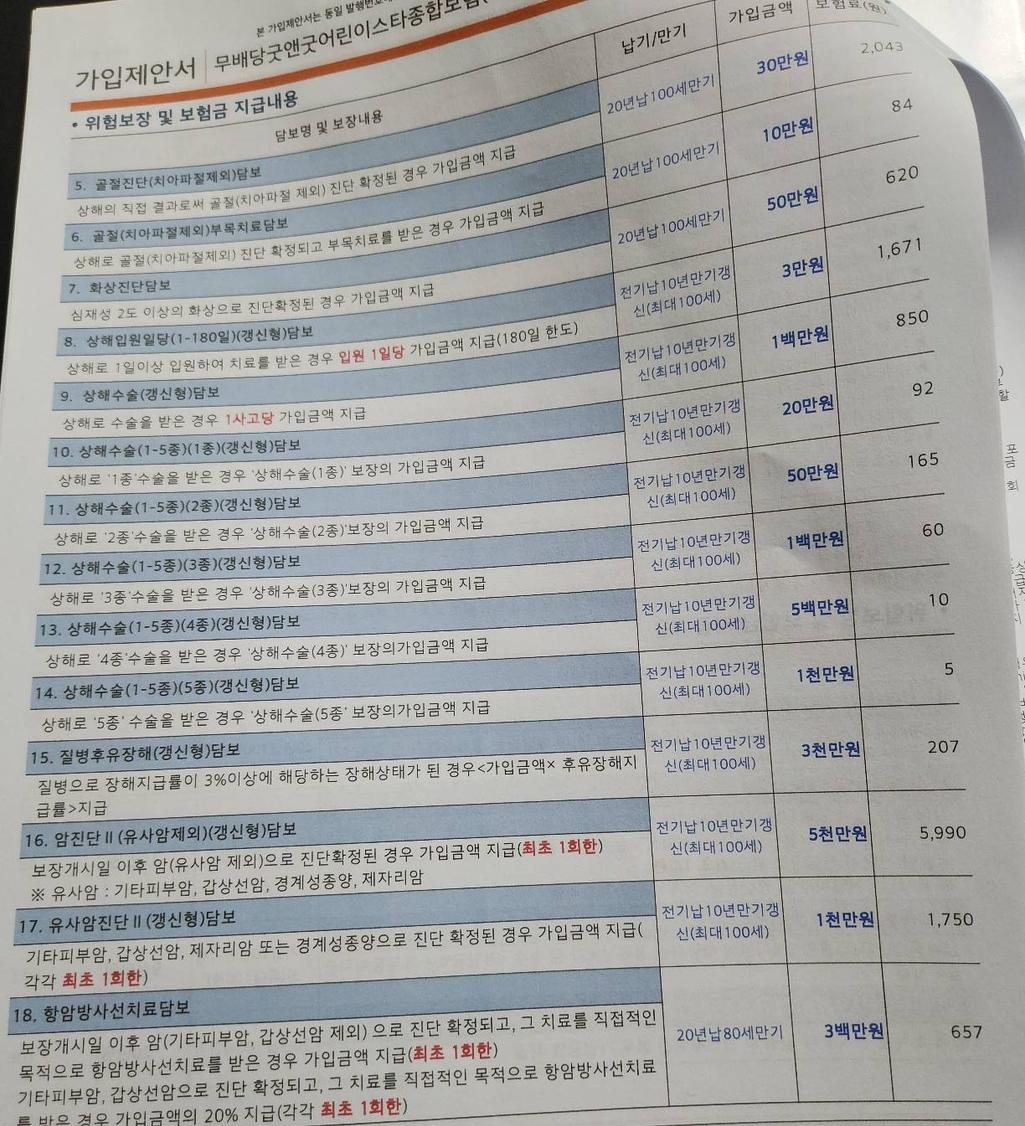 본 가입제안서는 동일 발행번호
가입제안서 무배당굿앤굿어린이스타종합보험(
• 위험보장 및 보험금 지급내용
담보명 및 보장내용 납기/만기 가입금액 보험료(원)
5. 골절진단(치아파절제외)담보 20년납100세만기 30만원 2,043
상해의 직접 결과로써 골절(치아파절 제외) 진단 확정된 경우 가입금액 지급
6. 골절(치아파절제외)부목치료담보 20년납100세만기 10만원 84
상해로 골절(치아파절제외) 진단 확정되고 부목치료를 받은 경우 가입금액 지급
7. 화상진단담보 20년납100세만기 50만원 620
심재성 2도 이상의 화상으로 진단확정된 경우 가입금액 지급
8. 상해입원일당(1-180일)(갱신형)담보 전기납10년만기갱 3만원 1,671
상해로 1일이상 입원하여 치료를 받은 경우 입원 1일당 가입금액 지급(180일 한도) 신(최대100세)
9. 상해수술(갱신형)담보 전기납10년만기갱 1백만원 850
상해로 수술을 받은 경우 1사고당 가입금액 지급 신(최대100세)
10. 상해수술(1-5종)(1종)(갱신형)담보 전기납10년만기갱 20만원 92
상해로 '1종'수술을 받은 경우 '상해수술(1종)' 보장의 가입금액 지급 신(최대100세)
11. 상해수술(1-5종)(2종)(갱신형)담보 전기납10년만기갱 50만원 165
상해로 '2종'수술을 받은 경우 '상해수술(2종)'보장의 가입금액 지급 신(최대100세)
12. 상해수술(1-5종)(3종)(갱신형)담보 전기납10년만기갱 1백만원 60
상해로 '3종'수술을 받은 경우 '상해수술(3종)'보장의 가입금액 지급 신(최대100세)
13. 상해수술(1-5종)(4종)(갱신형)담보 전기납10년만기갱 5백만원 10
상해로 '4종'수술을 받은 경우 '상해수술(4종)' 보장의가입금액 지급 신(최대100세)
14. 상해수술(1-5종)(5종)(갱신형)담보 전기납10년만기갱 1천만원 5
상해로 '5종' 수술을 받은 경우 '상해수술(5종' 보장의가입금액 지급 신(최대100세)
15. 질병후유장해(갱신형)담보 전기납10년만기갱 3천만원 207
질병으로 장해지급률이 3%이상에 해당하는 장해상태가 된 경우<가입금액× 후유장해지 신(최대100세)
급률>지급
16. 암진단Ⅱ(유사암제외)(갱신형)담보 전기납10년만기갱 5천만원 5,990
보장개시일 이후 암(유사암 제외)으로 진단확정된 경우 가입금액 지급(최초 1회한) 신(최대100세)
※ 유사암 : 기타피부암, 갑상선암, 경계성종양, 제자리암
17. 유사암진단Ⅱ(갱신형)담보 전기납10년만기갱 1천만원 1,750
기타피부암, 갑상선암, 제자리암 또는 경계성종양으로 진단 확정된 경우 가입금액 지급( 신(최대100세)
각각 최초 1회한)
18. 항암방사선치료담보 20년납80세만기 3백만원 657
보장개시일 이후 암(기타피부암, 갑상선암 제외) 으로 진단 확정되고, 그 치료를 직접적인
목적으로 항암방사선치료를 받은 경우 가입금액 지급(최초 1회한)
기타피부암, 갑상선암으로 진단 확정되고, 그 치료를 직접적인 목적으로 항암방사선치료
를 받은 경우 가입금액의 20% 지급(각각 최초 1회한)